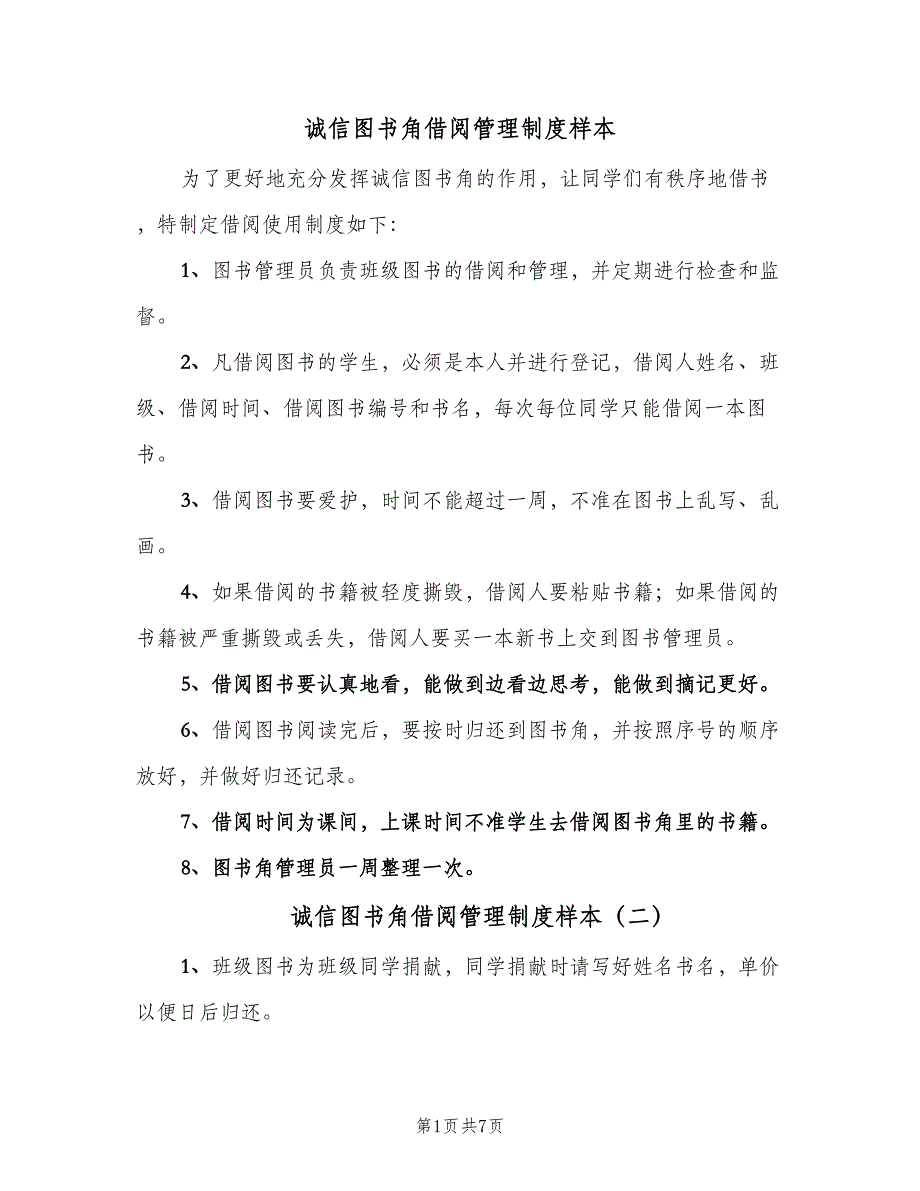 诚信图书角借阅管理制度样本
为了更好地充分发挥诚信图书角的作用，让同学们有秩序地借书
，特制定借阅使用制度如下：
1、图书管理员负责班级图书的借阅和管理，并定期进行检查和监
督。
2、凡借阅图书的学生，必须是本人并进行登记，借阅人姓名、班
级、借阅时间、借阅图书编号和书名，每次每位同学只能借阅一本图
书。
3、借阅图书要爱护，时间不能超过一周，不准在图书上乱写、乱
画。
4、如果借阅的书籍被轻度撕毁，借阅人要粘贴书籍；如果借阅的
书籍被严重撕毁或丢失，借阅人要买一本新书上交到图书管理员。
5、借阅图书要认真地看，能做到边看边思考，能做到摘记更好。
6、借阅图书阅读完后，要按时归还到图书角，并按照序号的顺序
放好，并做好归还记录。
7、借阅时间为课间，上课时间不准学生去借阅图书角里的书籍。
8、图书角管理员一周整理一次。
诚信图书角借阅管理制度样本（二）
1、班级图书为班级同学捐献，同学捐献时请写好姓名书名，单价
以便日后归还。
第1页共7页